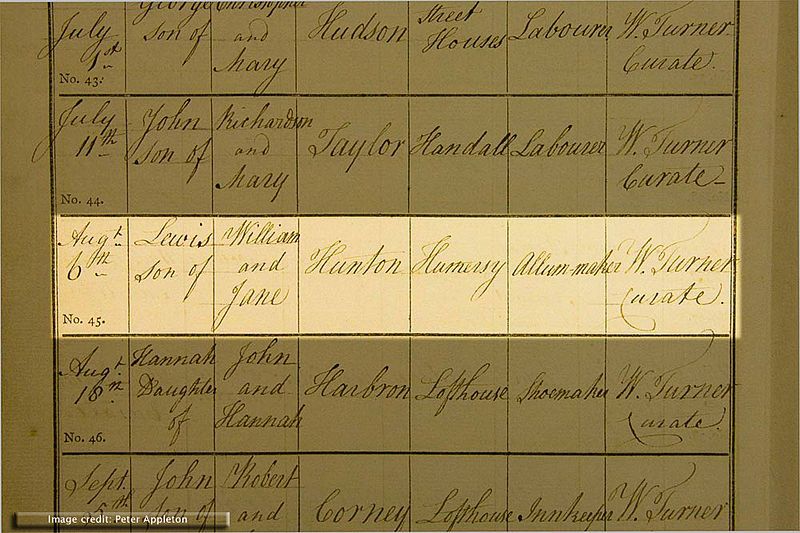 George Christopher Street
July son of and Hudson Houses Labourer W. Turner
1st Mary Curate.
No. 43.
July John Richardson
11th son of and Taylor Handall Labourer W. Turner
Mary Curate
No. 44.
Augt. Lewis William
6th son of and Hunton Humersy Allum-maker W. Turner
Jane Curate.
No. 45.
Augt. Hannah John
18th Daughter and Harbron Lofthouse Shoemaker W. Turner
of Hannah Curate.
No. 46.
Sept. John Robert
5th son of and Corney Lofthouse Innkeeper W. Turner
Image credit: Peter Appleton